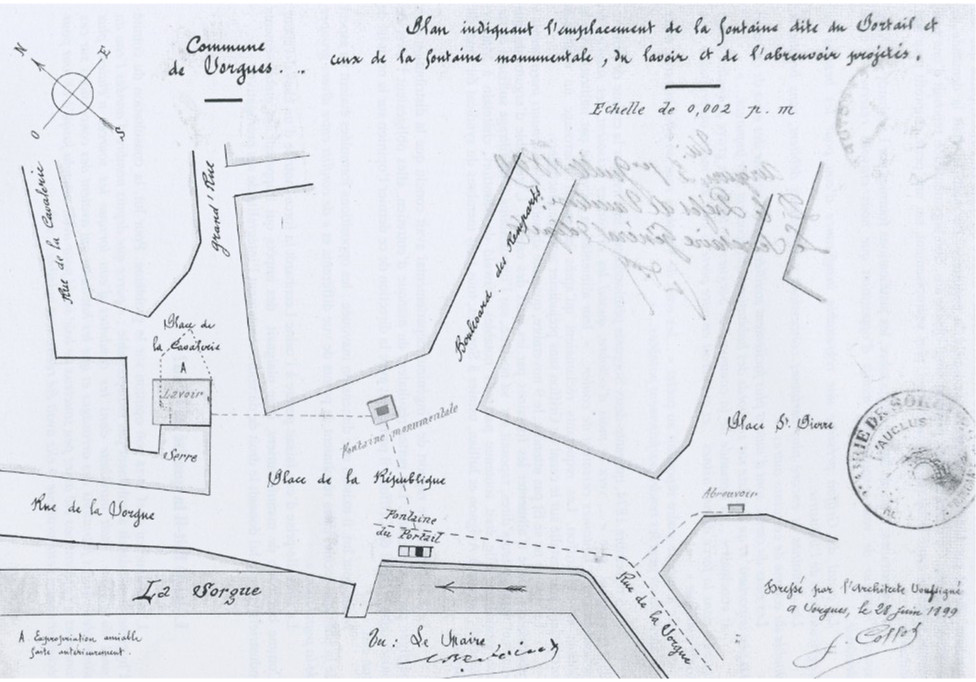 Plan indiquant l'emplacement de la fontaine dite du Portail et
ceux de la fontaine monumentale, du lavoir et de l'abreuvoir projetés.
Commune
de Sorgues.
Echelle de 0,002 p. m
N
E
O
S
Rue de la Cavalerie
Grand'Rue
Boulevard des Remparts
Place de
la Cavalerie
A
Lavoir
Serre
Fontaine monumentale
Place St. Pierre
Place de la République
Rue de la Sorgue
Abreuvoir
Fontaine
du Portail
La Sorgue
Rue de la Sorgue
A Expropriation amiable
faite antérieurement.
Vu: Le Maire
Dressé par l'Architecte Soussigné
a Sorgues, le 28 juin 1899
MAIRIE DE SORGUES
VAUCLUSE